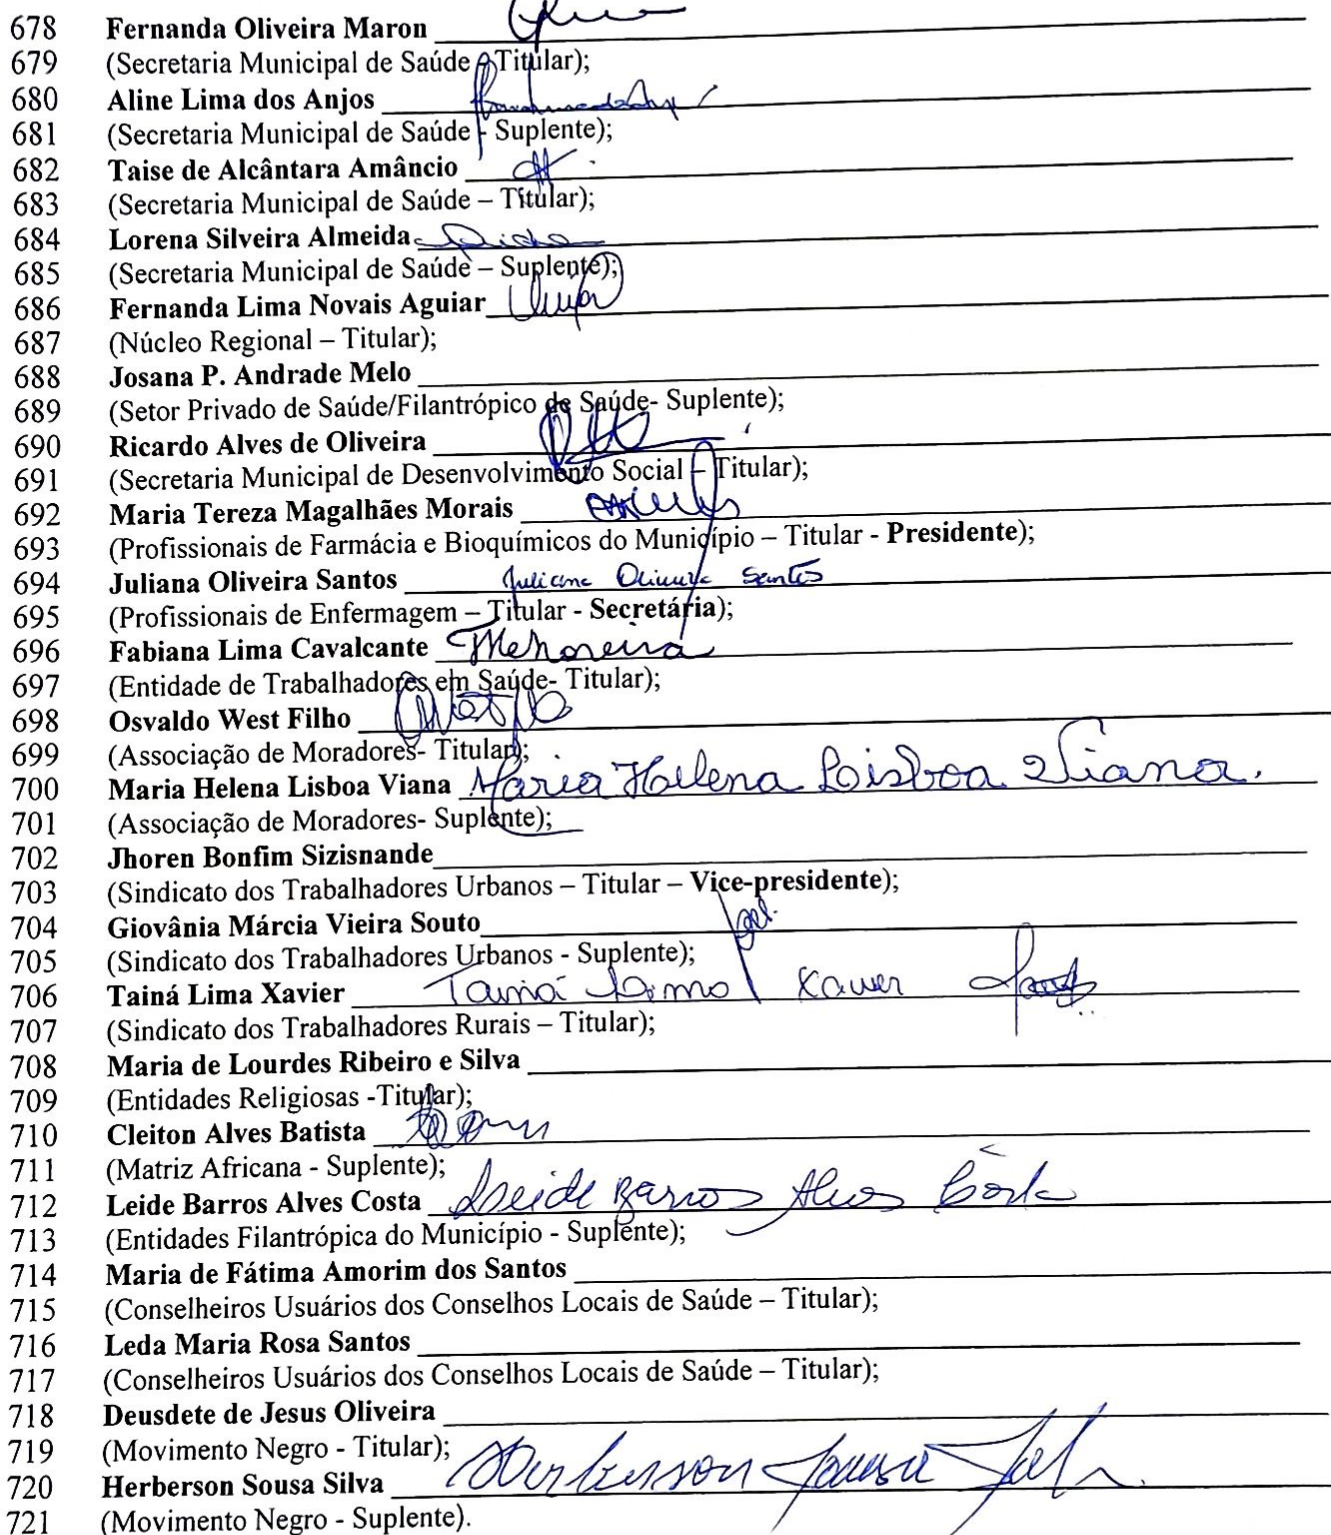 678 Fernanda Oliveira Maron
679 (Secretaria Municipal de Saúde - Titular);
680 Aline Lima dos Anjos
681 (Secretaria Municipal de Saúde - Suplente);
682 Taise de Alcântara Amâncio
683 (Secretaria Municipal de Saúde – Titular);
684 Lorena Silveira Almeida
685 (Secretaria Municipal de Saúde – Suplente);
686 Fernanda Lima Novais Aguiar
687 (Núcleo Regional – Titular);
688 Josana P. Andrade Melo
689 (Setor Privado de Saúde/Filantrópico de Saúde- Suplente);
690 Ricardo Alves de Oliveira
691 (Secretaria Municipal de Desenvolvimento Social – Titular);
692 Maria Tereza Magalhães Morais
693 (Profissionais de Farmácia e Bioquímicos do Município – Titular - Presidente);
694 Juliana Oliveira Santos Juliana Oliveira Santos
695 (Profissionais de Enfermagem – Titular - Secretária);
696 Fabiana Lima Cavalcante
697 (Entidade de Trabalhadores em Saúde- Titular);
698 Osvaldo West Filho
699 (Associação de Moradores- Titular);
700 Maria Helena Lisboa Viana Maria Helena Lisboa Viana.
701 (Associação de Moradores- Suplente);
702 Jhoren Bonfim Sizisnande
703 (Sindicato dos Trabalhadores Urbanos – Titular – Vice-presidente);
704 Giovânia Márcia Vieira Souto
705 (Sindicato dos Trabalhadores Urbanos - Suplente);
706 Tainá Lima Xavier Tainá Lima Xavier
707 (Sindicato dos Trabalhadores Rurais – Titular);
708 Maria de Lourdes Ribeiro e Silva
709 (Entidades Religiosas -Titular);
710 Cleiton Alves Batista
711 (Matriz Africana - Suplente);
712 Leide Barros Alves Costa Leide Barros Alves Costa
713 (Entidades Filantrópica do Município - Suplente);
714 Maria de Fátima Amorim dos Santos
715 (Conselheiros Usuários dos Conselhos Locais de Saúde – Titular);
716 Leda Maria Rosa Santos
717 (Conselheiros Usuários dos Conselhos Locais de Saúde – Titular);
718 Deusdete de Jesus Oliveira
719 (Movimento Negro - Titular);
720 Herberson Sousa Silva Herberson Sousa
721 (Movimento Negro - Suplente).